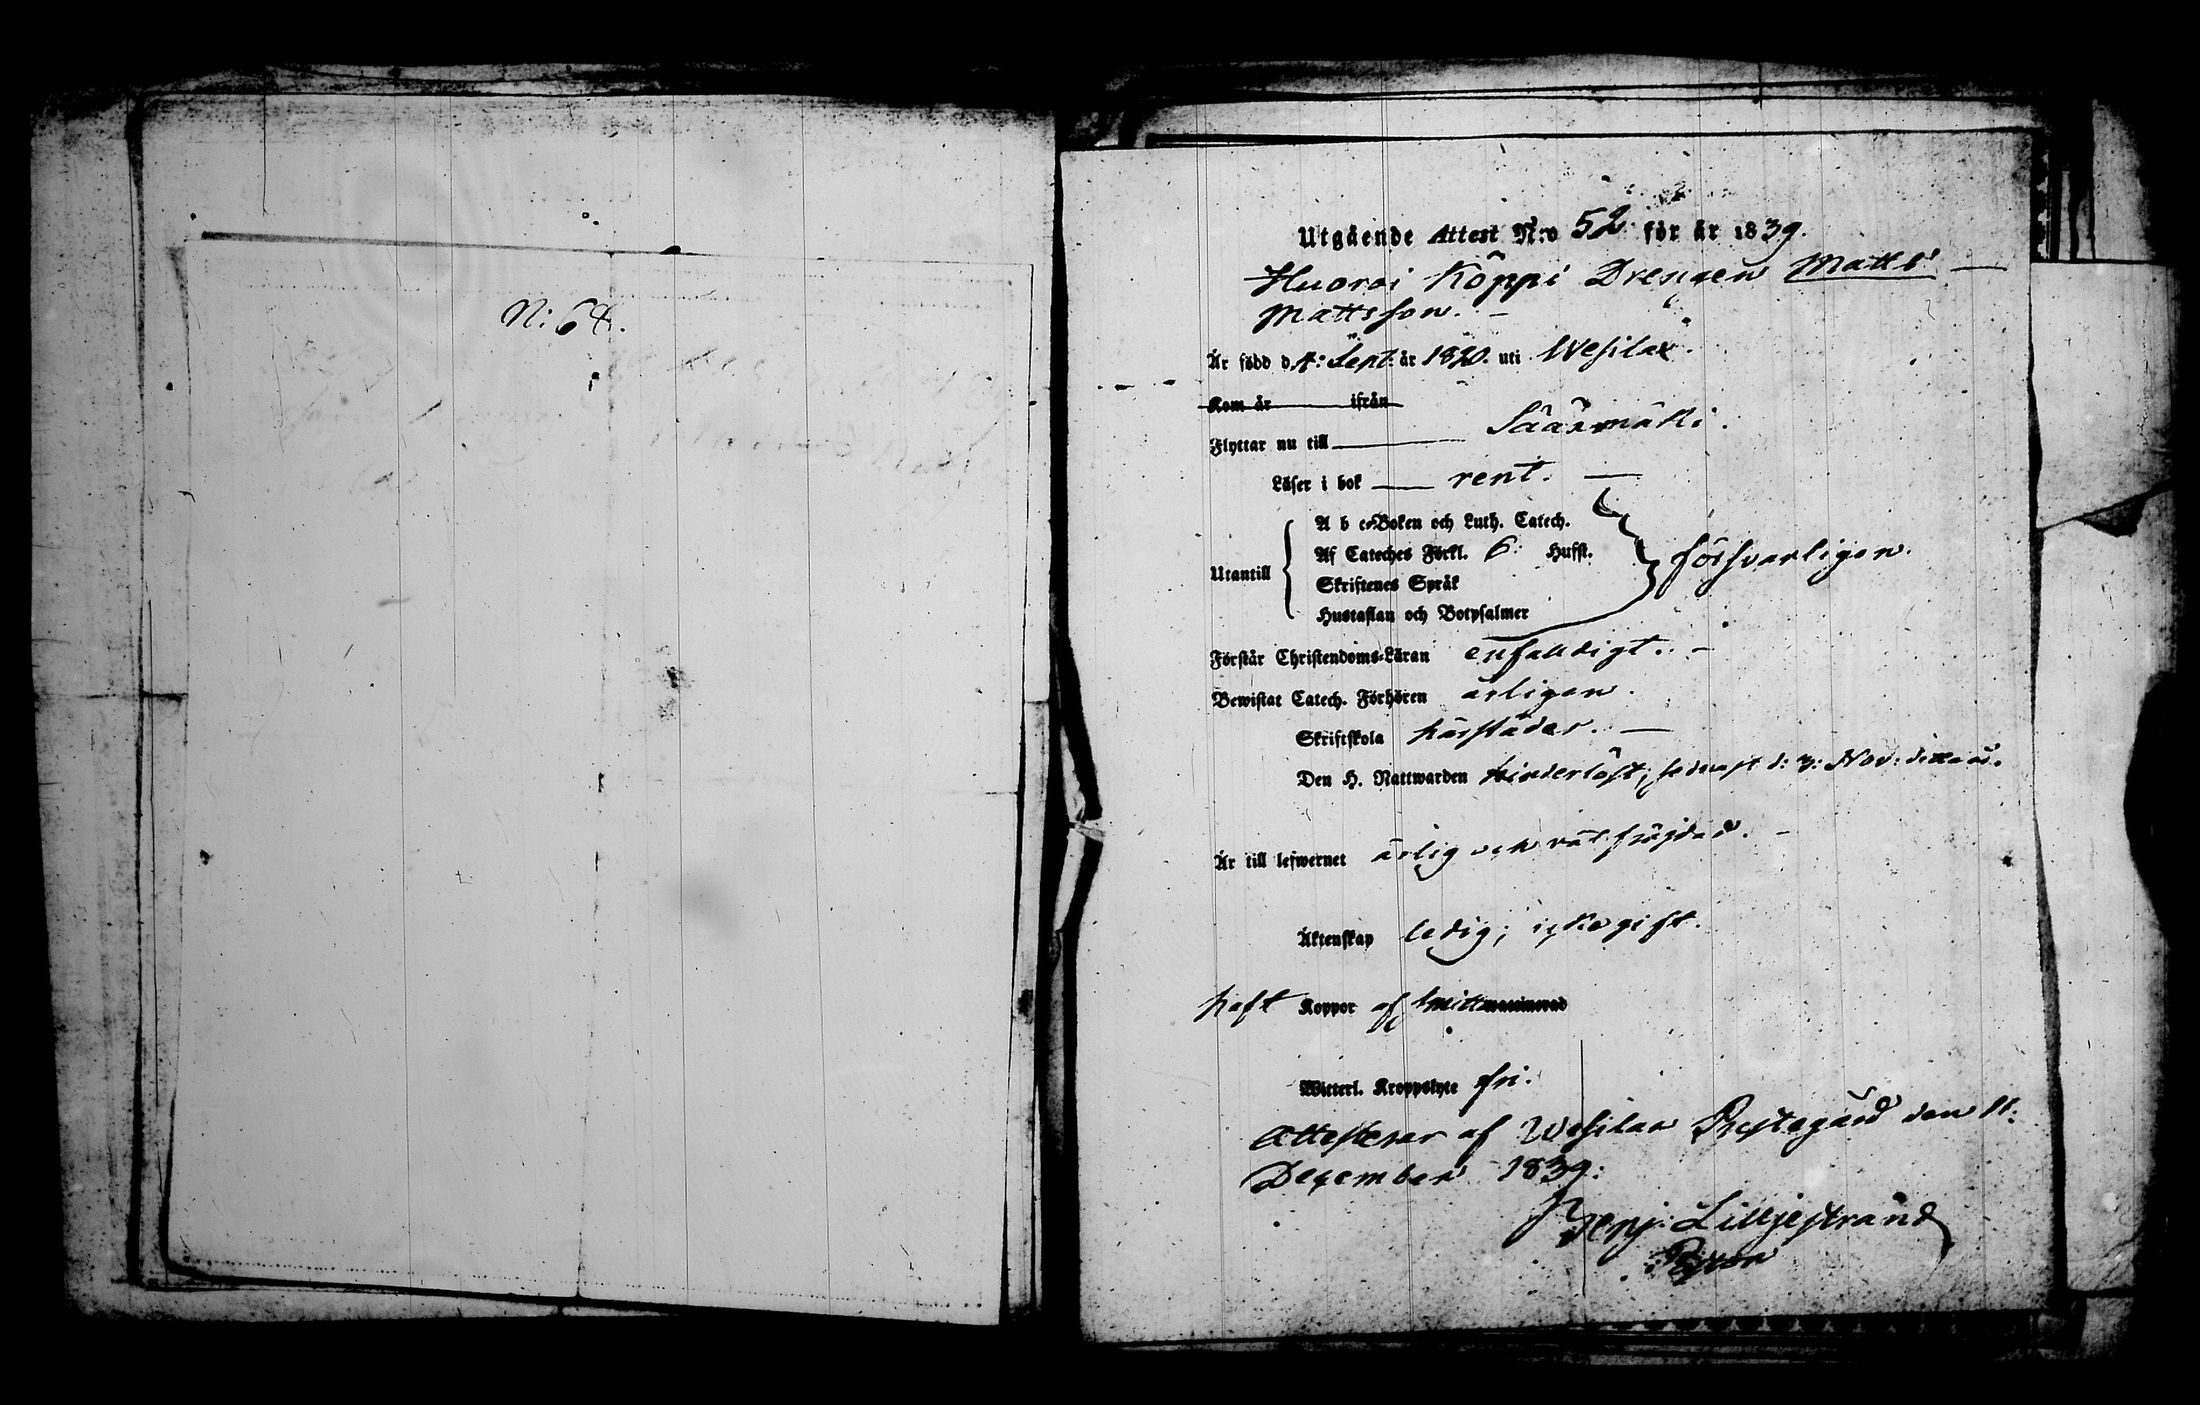 N: 64.
Utgående Attest N:o 52 för år 1839.
Huoroi Köppi Drengen Matts
Mattsson.
Är född d. 4: Sept: år 1820. uti Wesilax.
Kom år ifrån
Flyttar nu till Sääxmäki.
Läser i bok rent.
A b c-Boken och Luth. Catech.
Af Cateches Förkl. 6: Hufst.
Utantill försvarligen.
Skriftenes Språk
Hustaflan och Botpsalmer
Förstår Christendoms-Läran enfaldigt.
Bewistat Catech. Förhören årligen.
Skriftskola härstädes.
Den H. Nattwarden hinderlöst; sednast d: 3: Nov: detta år.
Är till lefwernet ärlig och väl frägdad.
Äktenskap ledig; icke gift.
haft Koppor af smitta
Witterl. Kroppslyte fri.
Attesterar af Wesilax Prestegård den 11:
December 1839:
Benj: Lilljestrand
Pastor